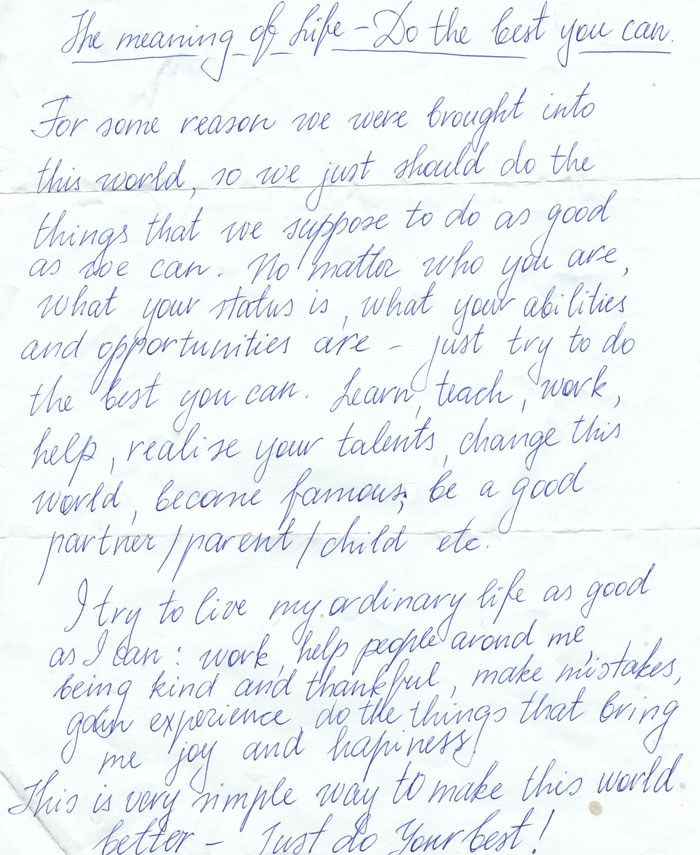 The meaning of Life – Do the best you can.
For some reason we were brought into
this world, so we just should do the
things that we suppose to do as good
as we can. No matter who you are,
what your status is, what your abilities
and opportunities are – just try to do
the best you can. Learn, teach, work,
help, realise your talents, change this
world, become famous, be a good
partner/parent/child etc.
I try to live my ordinary life as good
as I can: work, help people arond me,
being kind and thankful, make mistakes,
gain experience, do the things that bring
me joy and hapiness!
This is very simple way to make this world
better – Just do Your best!